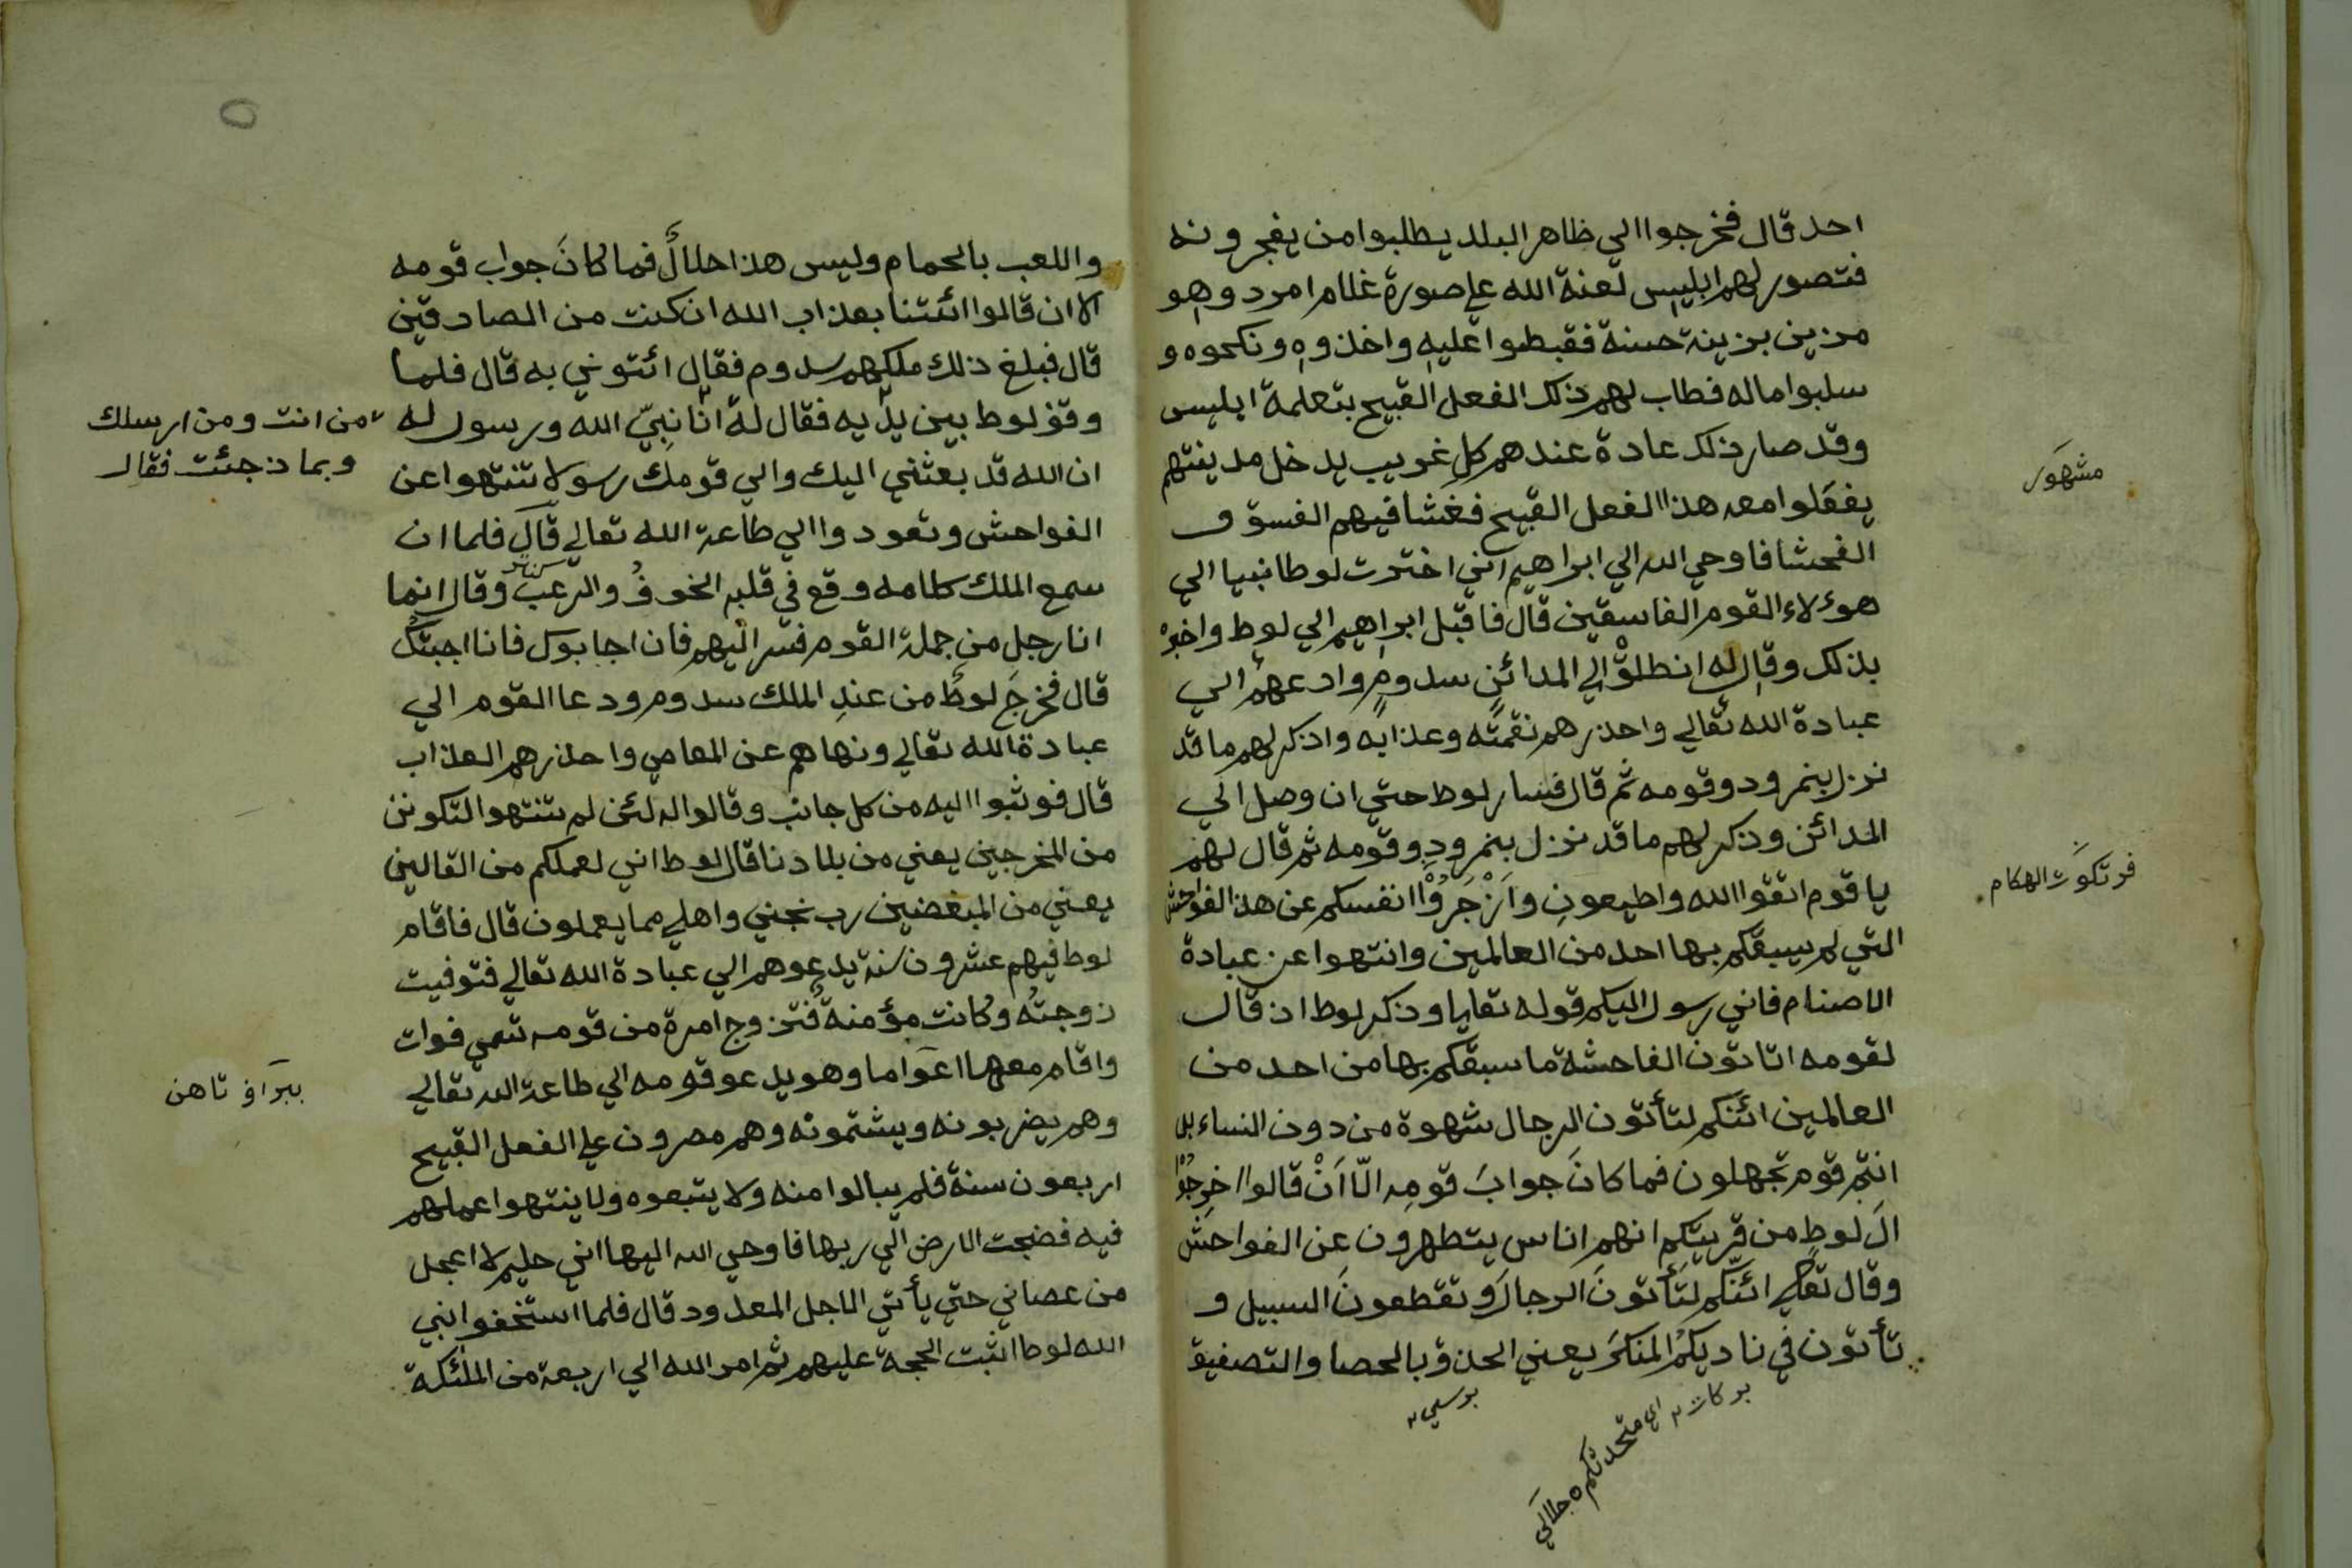 احد قال فخرجوا الي ظاهر البلد يطلبوا من يفجرونه
فتصور لهم ابليس لعنة الله علي صورة غلام امرد وهو
مزين بزينة حسنة فقبطوا عليه واخذوه ونكحوه و
سلبوا ماله فطاب لهم ذلك الفعل القبيح بتعلمة ابليس
وقد صار ذلك عادة عندهم كل غريب يدخل مدينتهم
يفعلوا معه هذا الفعل القبيح فغشا فيهم الفسوق
الفحشا فاوحي الله الي ابراهيم اني اخترت لوطا نبيا الي
هوءلاء القوم الفاسقين قال فاقبل ابراهيم الي لوط واخبره
بذلك وقال له انطلق الي المدائن سدوم وادعهم الي
عبادة الله تعالي واحذرهم نقمته وعذابه واذكر لهم ما قد
نزل بنمرود وقومه ثم قال فسار لوط حتي ان وصل الي
المدائن وذكر لهم ما قد نزل بنمرود وقومه ثم قال لهم
يا قوم اتقوا الله واطيعون وازجروا انفسكم عن هذا الفواحش
التي لم يسبقكم بها احد من العالمين وانتهوا عن عبادة
الاصنام فاني رسول اليكم قوله تعالي وذكر لوطا اذ قال
لقومه اتاتون الفاحشة ما سبقكم بها من احد من
العالمين ائنكم لتأتون الرجال شهوة من دون النساء بل
انتم قوم تجهلون فما كانَ جوابَ قومِه الّا اَنْ قالوا اخرجُوْا
الَ لوطٍ من قريتكم انهم اناس يتطهرون عن الفواحش
وقال تعالي ائنّكم لتَأتونَ الرجالَ وتقطعونَ السبيل و
تأتون في ناديكمُ المنكرَ يعني الحذق بالحصا والتصفيق
مشهور
فرتكون الهكام
بركات ٢
اي متحدثكم ه جلالي
برسيي ٢
واللعب بالحمام وليس هذا حلالً فما كانَ جواب قومه
الا ان قالوا ائتنا بعذاب الله ان كنت من الصادقين
قال فبلغ ذلك ملكهم سدوم فقال ائتوني به قال فلما
وقف لوط بين يديه فقال له انا نبيّ الله ورسوله
من انت ومن ارسلك
وبماذ جئت فقال
ان الله قد بعثني اليك والي قومك رسولا تنتهوا عن
الفواحش وتعودوا الي طاعة الله تعالي قال فلما ان
سمع الملك كلامه وقع في قلبه الخوفُ والرعبَ وقال انما
انا رجل من جملة القوم فسر اليهم فان اجابوك فانا اجبتك
قال فخرجَ لوطٌ من عندِ الملك سدوم ودعا القوم الي
عبادة الله تعالي ونهاهم عن المعاصي واحذرهم العذاب
قال فوثبوا اليه من كل جانب وقالوا له لئن لم تنتهوا لتكونن
من المخرجين يعني من بلادنا قال لوط اني لعملكم من القالين
يعني من المبغضين رب نجني واهلي مما يعملون قال فاقام
لوط فيهم عشرون سنة يدعوهم الي عبادة الله تعالي فتوفيت
زوجتُه وكانت مؤمنةً فتزوج امرة من قومه تسمي فوات
واقام معها اعواما وهو يدعو قومه الي طاعة الله تعالي
وهم يضربونه ويشتمونه وهم مصرون علي الفعل القبيح
اربعون سنة فلم يبالوا منه ولا يتبعوه ولا ينتهوا عملهم
فيه فضجت الارض الي ربها فاوحي الله اليها اني حليم لا اعجل
من عصاني حتي يأتي الاجل المعدود قال فلما استخفوا بنبي
الله لوطا اثبت الحجة عليهم ثم امر الله الي اربعة من الملئكة
ه